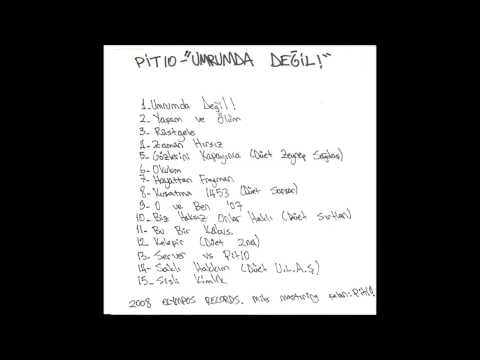 PİT10-"UMRUMDA DEĞİL!"
1_Umrumda Değil!
2_ Yaşam ve Ölüm
3_ Rastgele
4_ Zaman Hırsız
5_ Gözlerini Kapayınca (Düet Zeynep)
6_
7_ Hayattan Fragman
8_ Kuşatma 1453 (Düet Sansar)
9_ O ve Ben '07
10_ Biz Haksız Onlar Haklı (Düet)
11_ Bu Bir Kabus
12_ Kelepir (Düet 2nd)
13_ Server vs Pit10
14_ Saklı Hakkım (Düet U.L.A.Ş)
15_ Sisli Kimlik
2008 OLYMPOS RECORDS. mix mastring Pit10